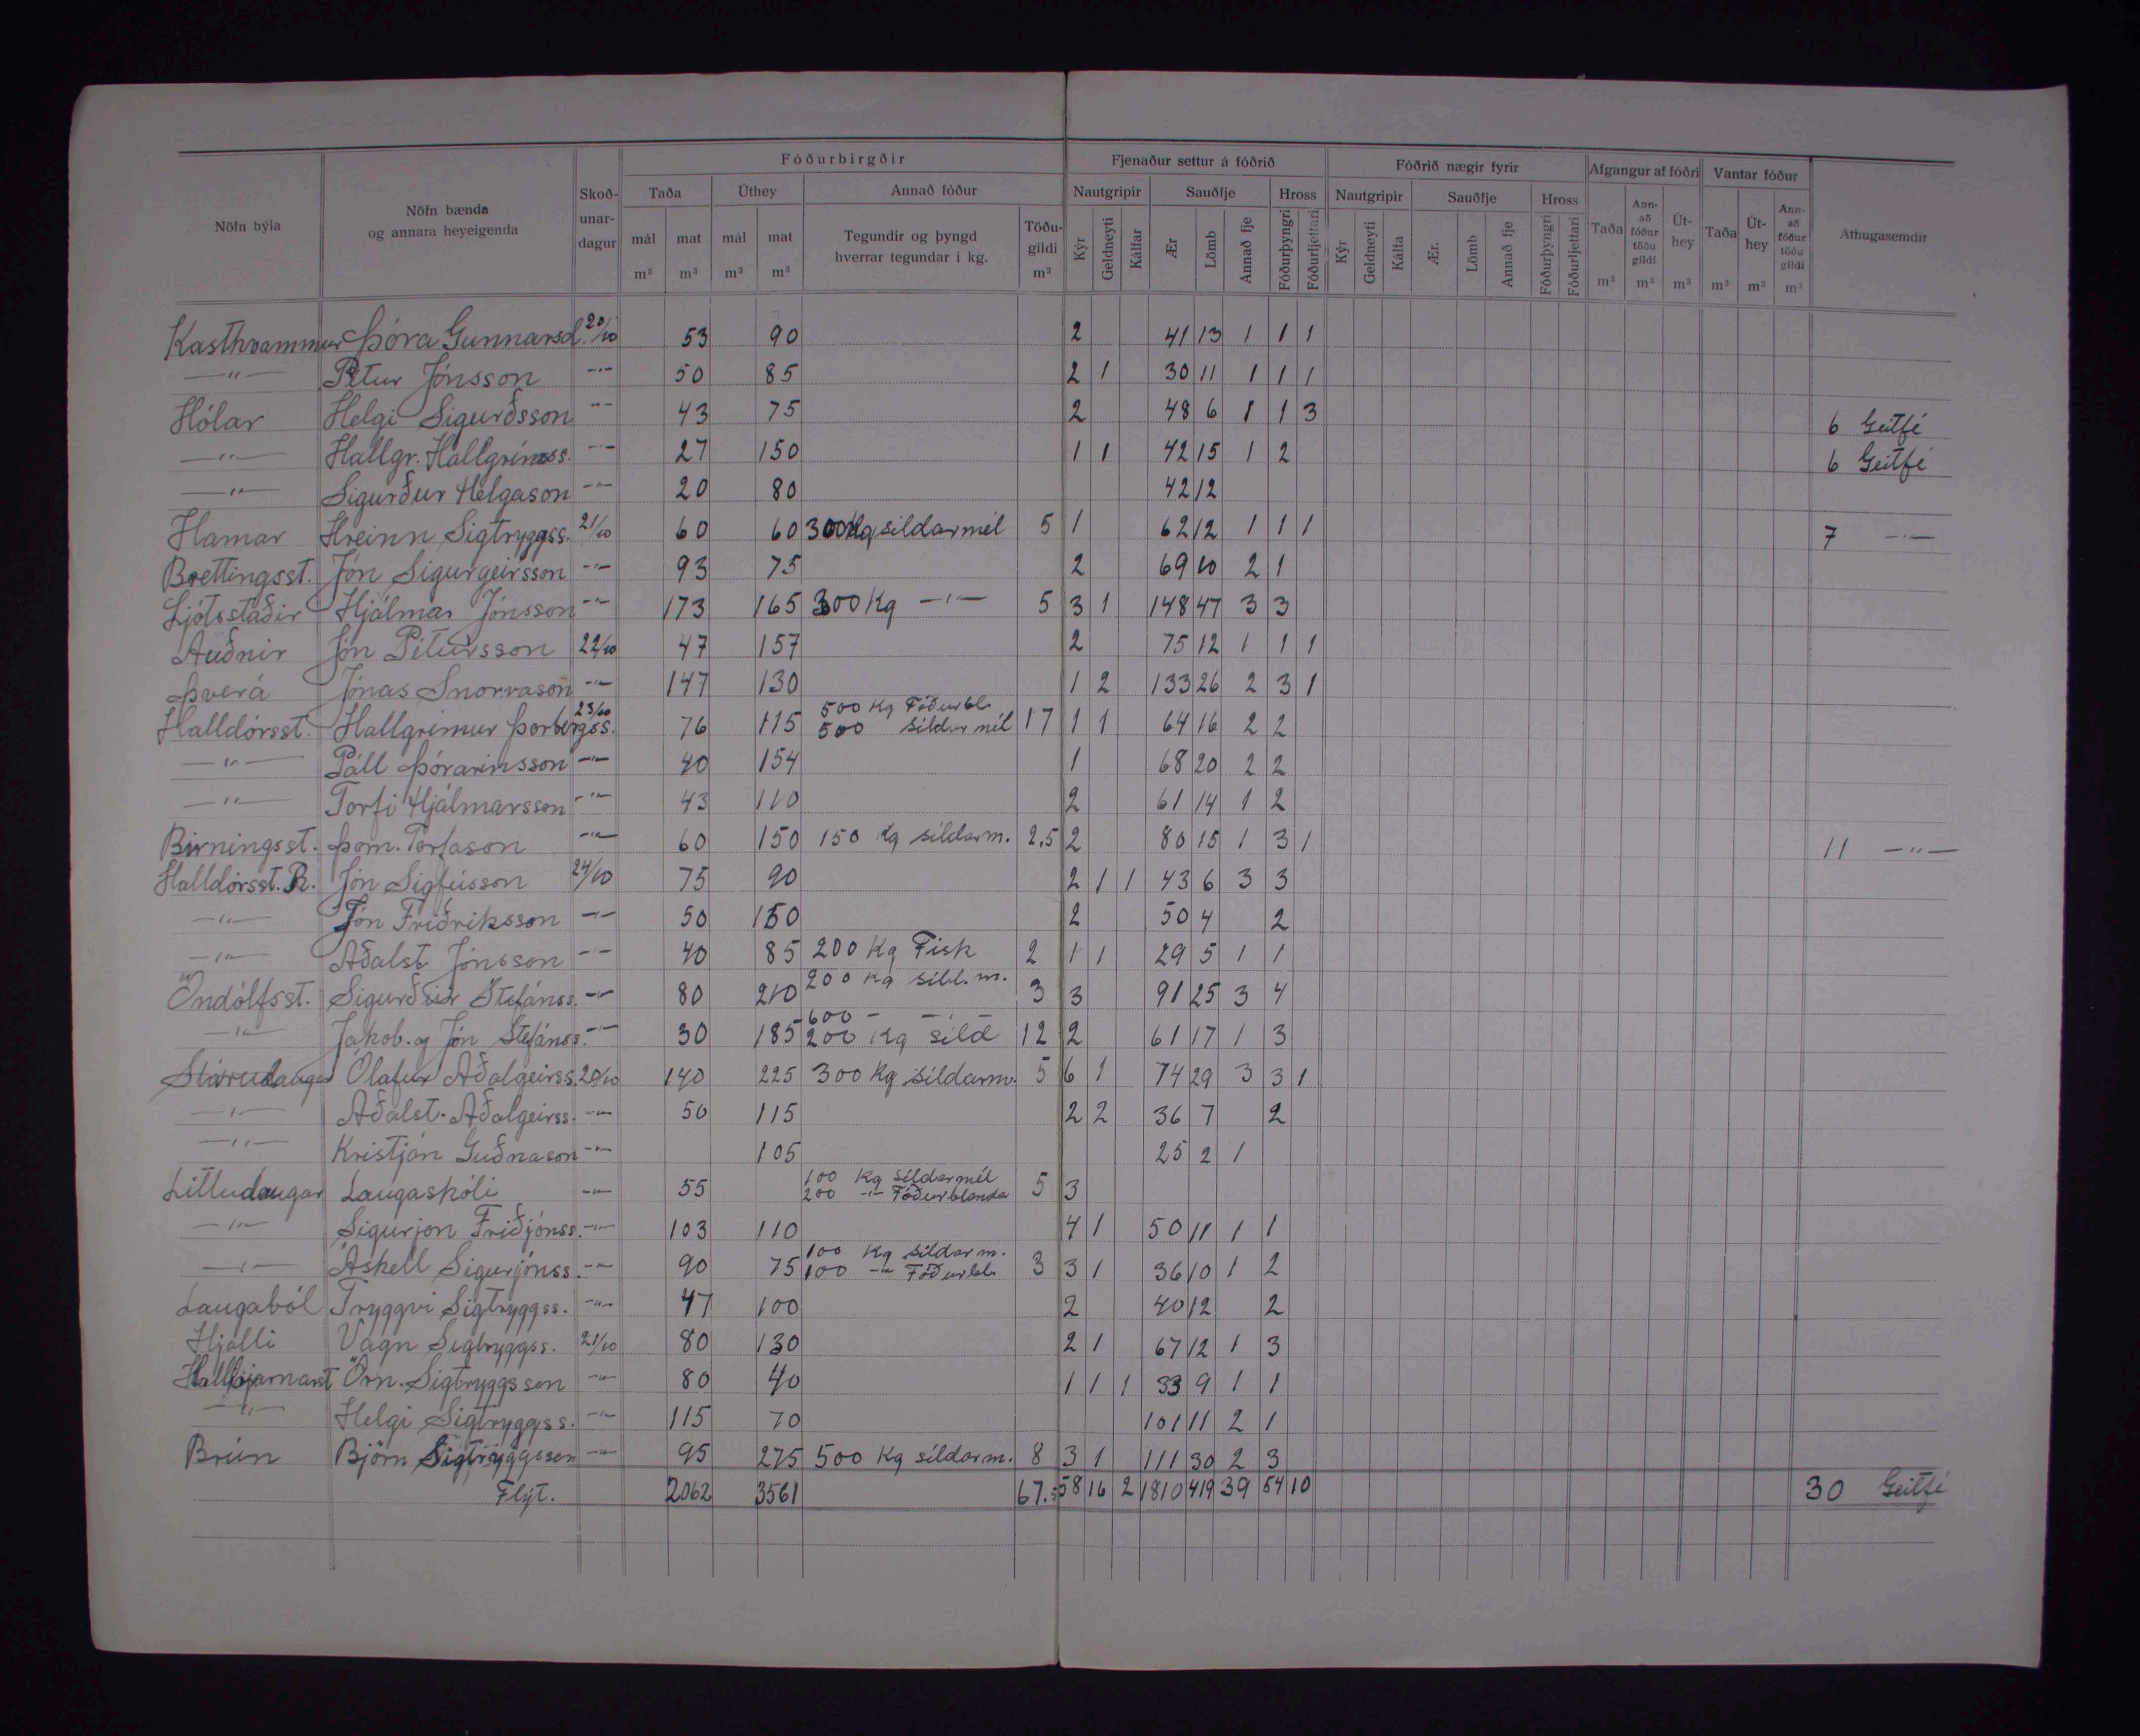 Fóðurbirgðir Fjenaður settur á fóðrið Fóðrið nægir fyrir Afgangur af fóðri Vantar fóður
Nöfn býla Nöfn bænda og annara heyeigenda Skoðunardagur Taða Úthey Annað fóður Nautgripir Sauðfje Hross Nautgripir Sauðfje Hross Athugasemdir
mál m³ mat m³ mál m³ mat m³ Tegundir og þyngd hverrar tegundar í kg. Töðugildi m³ Kýr Geldneyti Kálfar Ær Lömb Annað fje Fóðurþyngri Fóðurljettari Kýr Geldneyti Kálfa Ær. Lömb Annað fje Fóðurþyngri Fóðurljettari Taða m³ Annað fóður töðu gildi m³ Úthey m³ Taða m³ Úthey m³ Annað fóður töðu gildi m³
Kasthvammur Þóra Gunnarsd. 20/10 53 90 2 41 13 1 1 1
—"— Petur Jónsson —"— 50 85 2 1 30 11 1 1 1
Hólar Helgi Sigurðsson —"— 43 75 2 48 6 1 1 3 6 Geitfé
—"— Hallgr. Hallgrímss. —"— 27 150 1 1 42 15 1 2 6 Geitfé
—"— Sigurður Helgason —"— 20 80 42 12
Hamar Hreinn Sigtryggss. 21/10 60 60 300 Kg síldarmél 5 1 62 12 1 1 1 7 —"—
Brettingsst. Jón Sigurgeirsson —"— 93 75 2 69 10 2 1
Ljótsstaðir Hjálmar Jónsson —"— 173 165 300 Kg —"— 5 3 1 148 47 3 3
Auðnir Jón Pétursson 22/10 47 157 2 75 12 1 1 1
Þverá Jónas Snorrason —"— 147 130 1 2 133 26 2 3 1
Halldórsst. Hallgrímur Þorbergss. 23/10 76 115 500 Kg Fóðurbl. 500 síldarmél 17 1 1 64 16 2 2
—"— Páll Þórarinsson —"— 40 154 1 68 20 2 2
—"— Torfi Hjálmarsson —"— 43 110 2 61 14 1 2
Birningsst. Þorm. Torfason —"— 60 150 150 Kg síldarm. 2,5 2 80 15 1 3 1 11 —"—
Halldórsst. R. Jón Sigfússon 24/10 75 90 2 1 1 43 6 3 3
—"— Jón Friðriksson —"— 50 150 2 50 4 2
—"— Aðalst Jónsson —"— 40 85 200 Kg Fisk 2 1 1 29 5 1 1
Öndólfsst. Sigurður Stefánss. —"— 80 210 200 Kg síld.m. 3 3 91 25 3 4
—"— Jakob. og Jón Stefánss. —"— 30 185 -600 - - - 200 Kg síld 12 2 61 17 1 3
Stórulaugar Ólafur Aðalgeirss. 20/10 140 225 300 Kg síldarm. 5 6 1 74 29 3 3 1
—"— Aðalst. Aðalgeirss. —"— 50 115 2 2 36 7 2
—"— Kristján Guðnason —"— 105 25 2 1
Litlulaugar Laugaskóli —"— 55 100 Kg síldarmél 200 —"— Fóðurblanda 5 3
—"— Sigurjon Friðjónss. —"— 103 110 4 1 50 11 1 1
—"— Áskell Sigurjónss. —"— 90 75 100 Kg síldarm. 100 —"— Fóðurbl. 3 3 1 36 10 1 2
Laugaból Tryggvi Sigtryggss. —"— 47 100 2 40 12 2
Hjalli Vagn Sigtryggss. 21/10 80 130 2 1 67 12 1 3
Hallbjarnarst Örn. Sigtryggsson —"— 80 40 1 1 1 33 9 1 1
—"— Helgi Sigtryggss. —"— 115 70 101 11 2 1
Brún Björn Sigtryggsson —"— 95 275 500 Kg síldarm. 8 3 1 111 30 2 3
Flýt. 2062 3561 67.5 58 16 2 1810 419 39 54 10 30 Geitfé